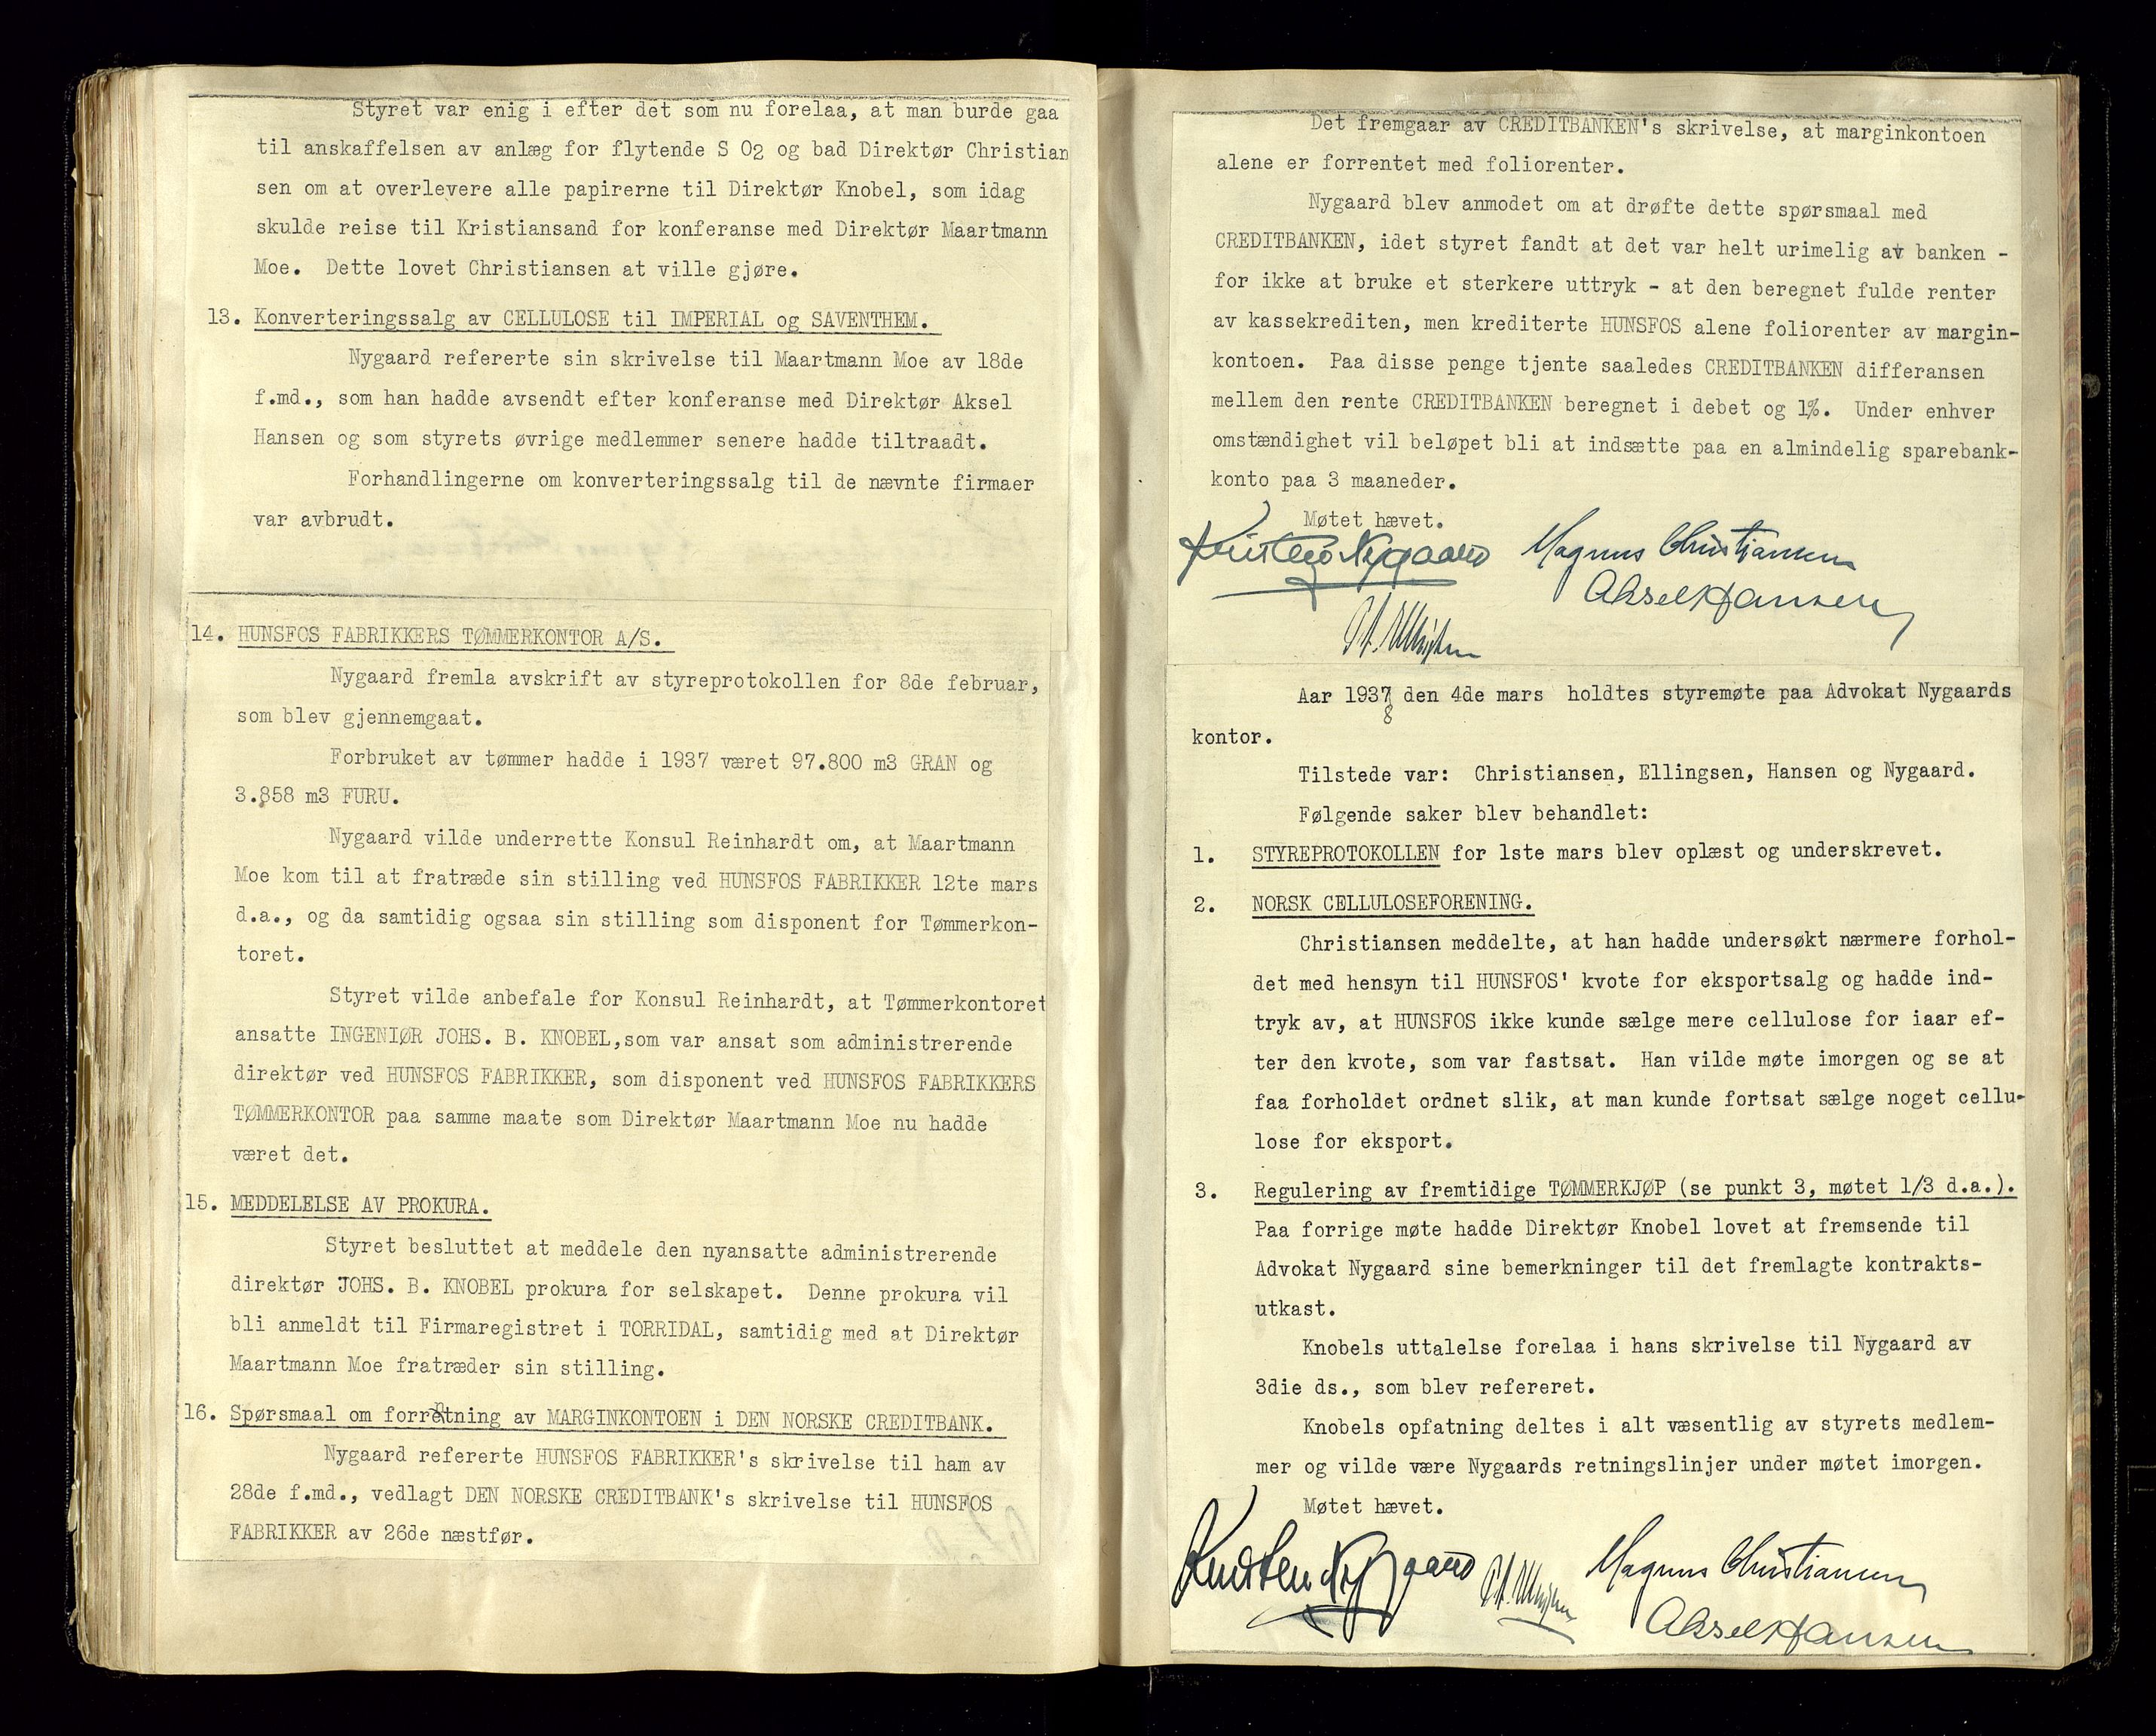 Styret var enig i efter det som nu forelaa, at man burde gaa
til anskaffelsen av anlæg for flytende S O2 og bad Direktør Christian
sen om at overlevere alle papirerne til Direktør Knobel, som idag
skulde reise til Kristiansand for konferanse med Direktør Maartmann
Moe. Dette lovet Christiansen at ville gjøre.
13. Konverteringssalg av CELLULOSE til IMPERIAL og SAVENTHEM.
Nygaard refererte sin skrivelse til Maartmann Moe av 18de
f.md., som han hadde avsendt efter konferanse med Direktør Aksel
Hansen og som styrets øvrige medlemmer senere hadde tiltraadt.
Forhandlingerne om konverteringssalg til de nævnte firmaer
var avbrudt.
14. HUNSFOS FABRIKKERS TØMMERKONTOR A/S.
Nygaard fremla avskrift av styreprotokollen for 8de februar,
som blev gjennemgaat.
Forbruket av tømmer hadde i 1937 været 97.800 m3 GRAN og
3.858 m3 FURU.
Nygaard vilde underrette Konsul Reinhardt om, at Maartmann
Moe kom til at fratræde sin stilling ved HUNSFOS FABRIKKER 12te mars
d.a., og da samtidig ogsaa sin stilling som disponent for Tømmerkon-
toret.
Styret vilde anbefale for Konsul Reinhardt, at Tømmerkontoret
ansatte INGENIØR JOHS. B. KNOBEL,som var ansat som administrerende
direktør ved HUNSFOS FABRIKKER, som disponent ved HUNSFOS FABRIKKERS
TØMMERKONTOR paa samme maate som Direktør Maartmann Moe nu hadde
været det.
15. MEDDELELSE AV PROKURA.
Styret besluttet at meddele den nyansatte administrerende
direktør JOHS. B. KNOBEL prokura for selskapet. Denne prokura vil
bli anmeldt til Firmaregistret i TORRIDAL, samtidig med at Direktør
Maartmann Moe fratræder sin stilling.
16. Spørsmaal om forrentning av MARGINKONTOEN i DEN NORSKE CREDITBANK.
Nygaard refererte HUNSFOS FABRIKKER's skrivelse til ham av
28de f.md., vedlagt DEN NORSKE CREDITBANK's skrivelse til HUNSFOS
FABRIKKER av 26de næstfør.
Det fremgaar av CREDITBANKEN's skrivelse, at marginkontoen
alene er forrentet med foliorenter.
Nygaard blev anmodet om at drøfte dette spørsmaal med
CREDITBANKEN, idet styret fandt at det var helt urimelig av banken -
for ikke at bruke et sterkere uttryk - at den beregnet fulde renter
av kassekrediten, men krediterte HUNSFOS alene foliorenter av margin-
kontoen. Paa disse penge tjente saaledes CREDITBANKEN differansen
mellem den rente CREDITBANKEN beregnet i debet og 1%. Under enhver
omstændighet vil beløpet bli at indsætte paa en almindelig sparebank-
konto paa 3 maaneder.
Møtet hævet.
Kristen Nygaard Magnus Christiansen
Aksel Hansen
Aar 1937 den 4de mars holdtes styremøte paa Advokat Nygaards
8
kontor.
Tilstede var: Christiansen, Ellingsen, Hansen og Nygaard.
Følgende saker blev behandlet:
1. STYREPROTOKOLLEN for 1ste mars blev oplæst og underskrevet.
2. NORSK CELLULOSEFORENING.
Christiansen meddelte, at han hadde undersøkt nærmere forhol-
det med hensyn til HUNSFOS' kvote for eksportsalg og hadde ind-
tryk av, at HUNSFOS ikke kunde sælge mere cellulose for iaar ef-
ter den kvote, som var fastsat. Han vilde møte imorgen og se at
faa forholdet ordnet slik, at man kunde fortsat sælge noget cellu-
lose for eksport.
3. Regulering av fremtidige TØMMERKJØP (se punkt 3, møtet 1/3 d.a.).
Paa forrige møte hadde Direktør Knobel lovet at fremsende til
Advokat Nygaard sine bemerkninger til det fremlagte kontrakts-
utkast.
Knobels uttalelse forelaa i hans skrivelse til Nygaard av
3die ds., som blev refereret.
Knobels opfatning deltes i alt væsentlig av styrets medlem-
mer og vilde være Nygaards retningslinjer under møtet imorgen.
Møtet hævet.
Kristen Nygaard Magnus Christiansen
Aksel Hansen